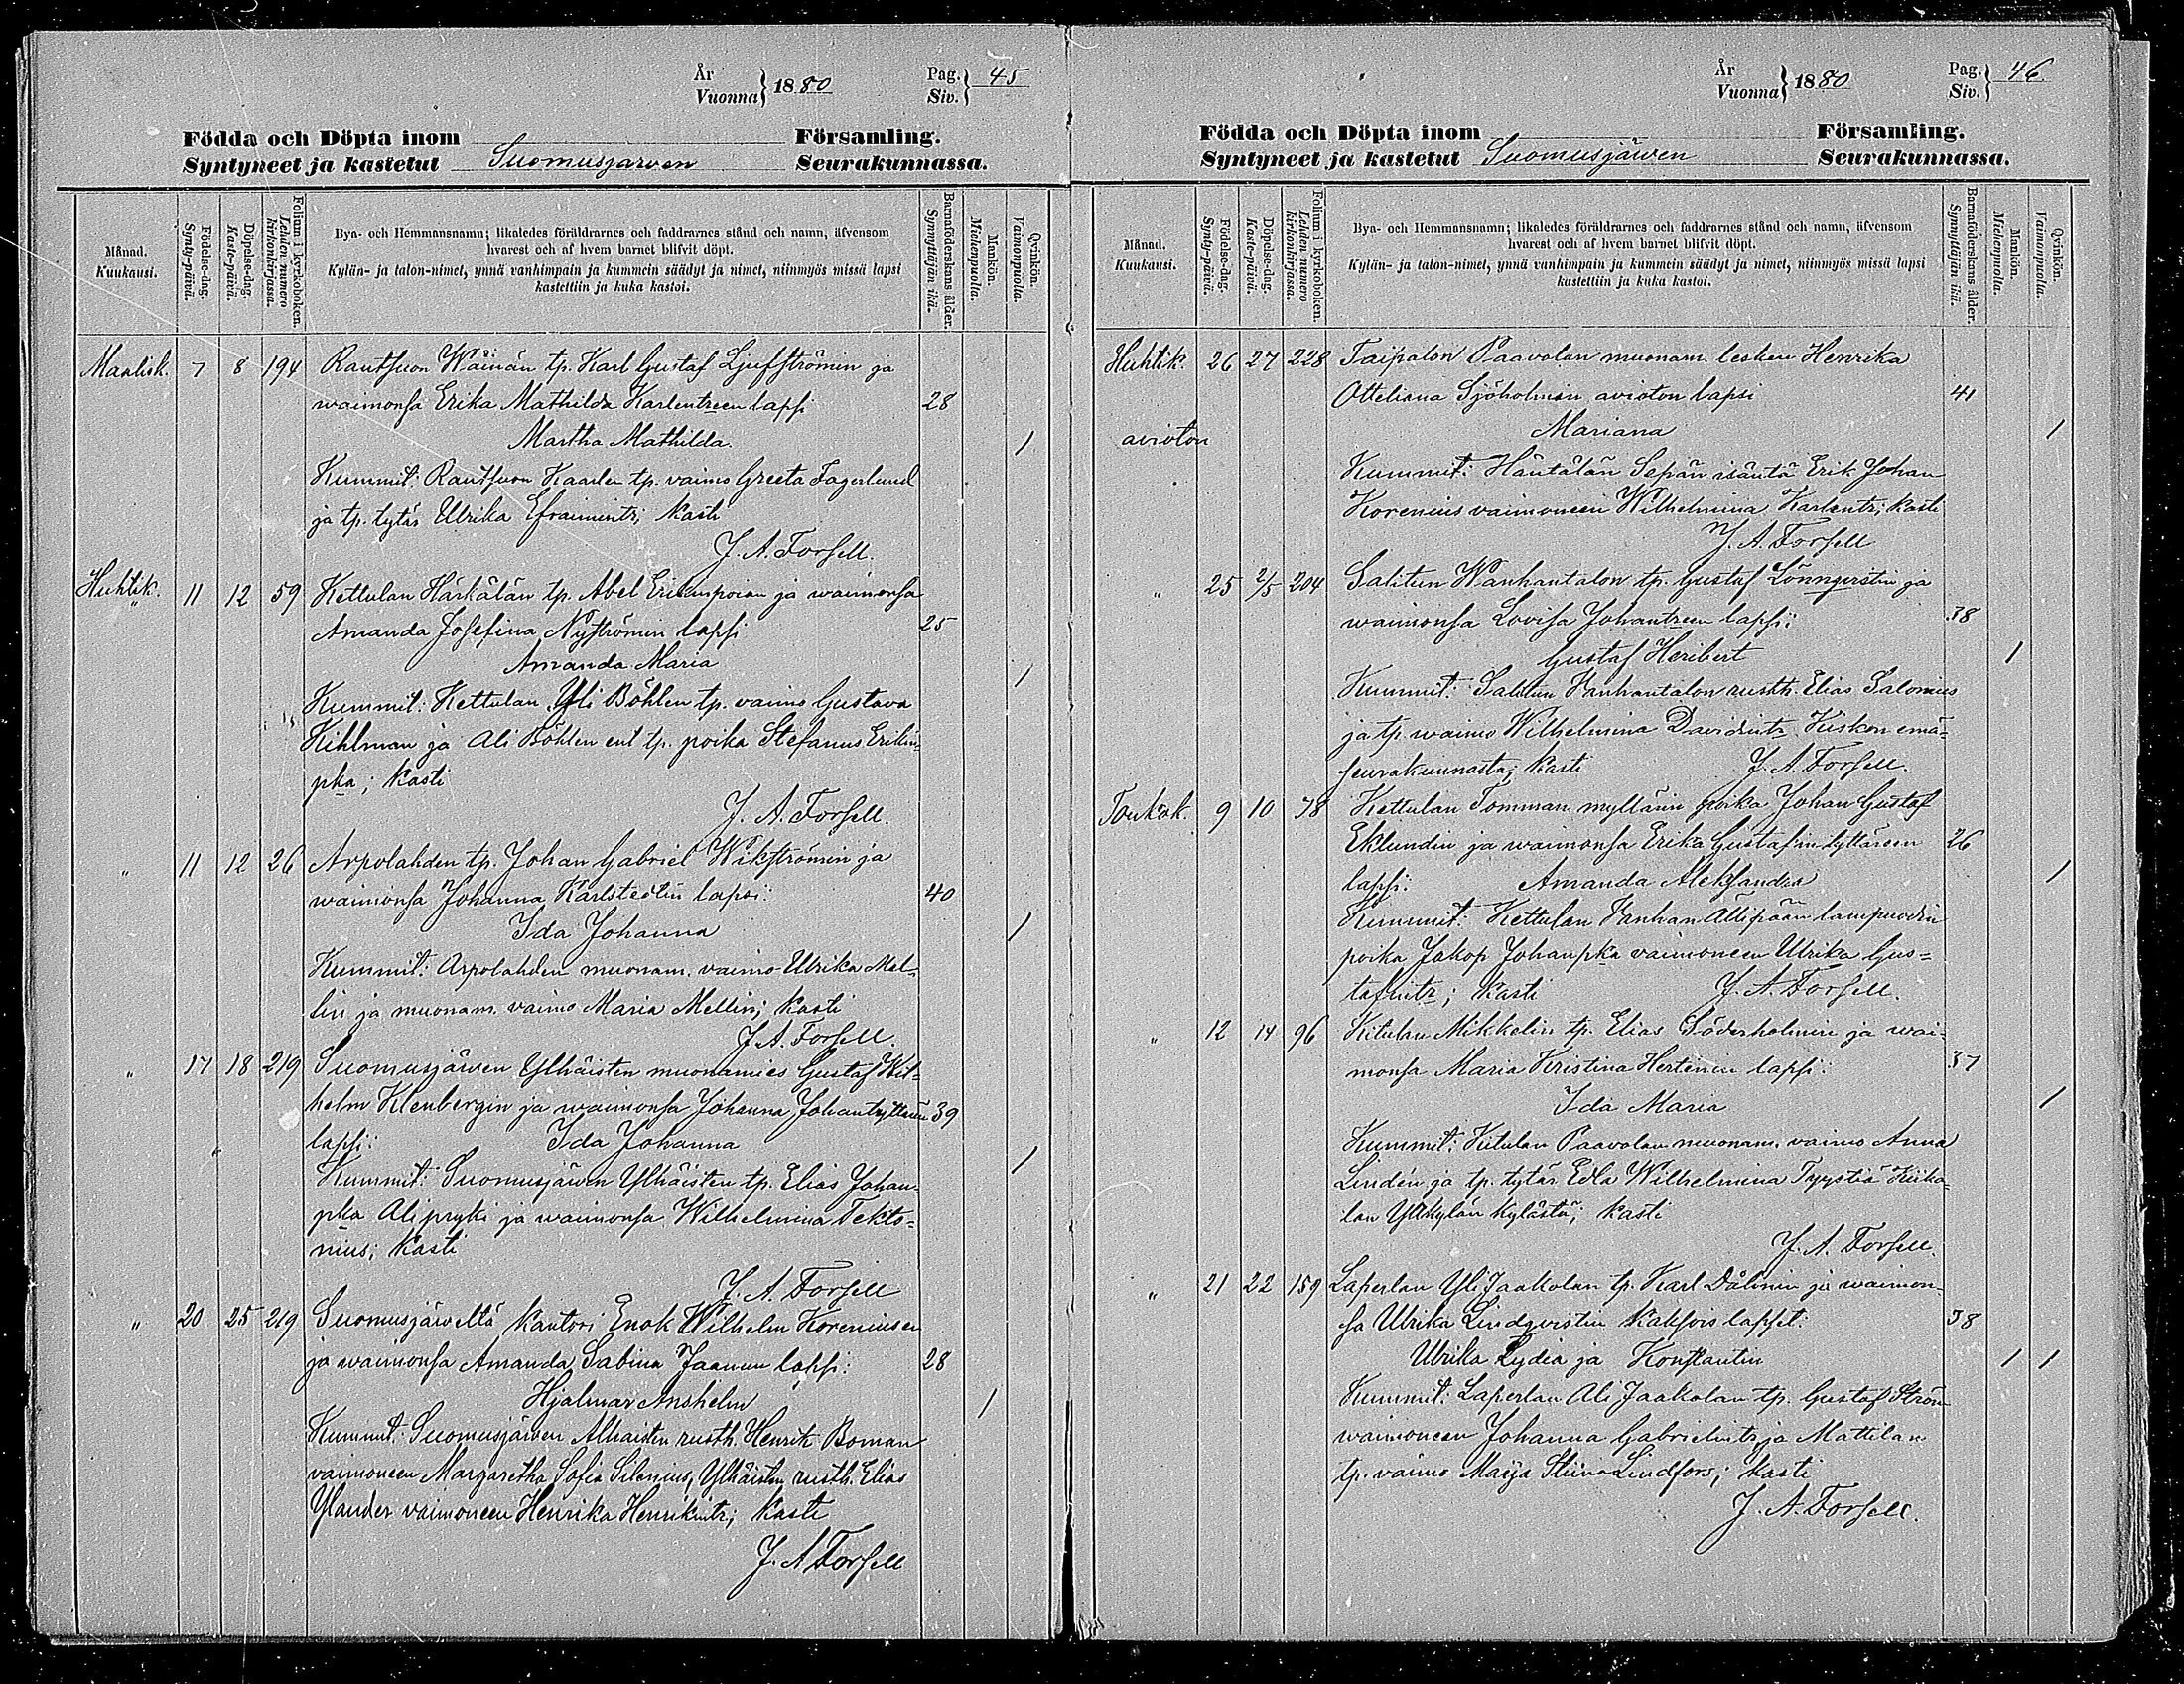 År
Vuonna } 1880
Pag.
Siv. } 45
Födda och Döpta inom Församling.
Syntyneet ja kastetut Suomusjärven Seurakunnassa.
Månad.
Kuukausi.
Födelse-dag.
Synty-päivä.
Döpelse-dag.
Kaste-päivä.
Folium i kyrkoboken.
Lehden numero kirkonkirjassa.
Bya- och Hemmansnamn; likaledes föräldrarnes och faddrarnes stånd och namn, äfvensom
hvarest och af hvem barnet blifvit döpt.
Kylän- ja talon-nimet, ynnä vanhimpain ja kummein säädyt ja nimet, niinmyös missä lapsi
kastettiin ja kuka kastoi.
Barnaföderskans ålder.
Synnyttäjän ikä.
Mankön.
Miehenpuolia.
Qvinkön.
Vaimonpuolia.
Maalisk. 7 8 194 Rautsuon Wäinän tp. Karl Gustaf Ljufströmin ja
waimonsa Erika Mathilda Karlentreen lapsi 28
Martha Mathilda. 1
Kummit: Rautsuon Kaarlen tp. vaimo Greeta Fagerlund
ja tp. tytär Ulrika Efraimintr; kasti
J. A. Forsell.
Huhtik. 11 12 59 Kettulan Härkälän tp. Abel Erikinpoian ja waimonsa
Amanda Josefina Nyströmin lapsi 25
Amanda Maria 1
Kummit: Kettulan Yli Böhlen tp. vaimo Gustava
Kihlman ja Ali Böhlen ent tp. poika Stefanus Erikin-
pka; kasti
J. A. Forsell.
" 11 12 26 Arpolahden tp. Johan Gabriel Wikströmin ja
waimonsa Johanna Karlstedtin lapsi: 40
Ida Johanna 1
Kummit: Arpolahden muonam. vaimo Ulrika Mel-
lin ja muonam. vaimo Maria Mellin; kasti
J. A. Forsell.
" 17 18 219 Suomusjärven Ylhäisten muonamies Gustaf Wil=
helm Klenbergin ja waimonsa Johanna Johantyttären 39
lapsi: Ida Johanna 1
Kummit: Suomusjärven Ylhäisten tp. Elias Johan-
pka Alipryki ja waimonsa Wilhelmina Tekto=
nius; kasti
J. A. Forsell
" 20 25 219 Suomusjärveltä kantori Enok Wilhelm Koreniusen
ja waimonsa Amanda Sabina Jaanun lapsi: 28
Hjalmar Anshelm 1
Kummit: Suomusjärven Alhaisten rusth. Henrik Boman
vaimoneen Margaretha Sofia Silenius, Ylhäisten rusth. Elias
Ylander vaimoneen Henrika Henrikintr; kasti
J. A Forsell
År
Vuonna } 1880
Pag.
Siv. } 46.
Födda och Döpta inom Församling.
Syntyneet ja kastetut Suomusjäwen Seurakunnassa.
Månad.
Kuukausi.
Födelse-dag.
Synty-päivä.
Döpelse-dag.
Kaste-päivä.
Folium i kyrkoboken.
Lehden numero kirkonkirjassa.
Bya- och Hemmansnamn; likaledes föräldrarnes och faddrarnes stånd och namn, äfvensom
hvarest och af hvem barnet blifvit döpt.
Kylän- ja talon-nimet, ynnä vanhimpain ja kummein säädyt ja nimet, niinmyös missä lapsi
kastettiin ja kuka kastoi.
Barnaföderskans ålder.
Synnyttäjän ikä.
Mankön.
Miehenpuolia.
Qvinkön.
Vaimonpuolia.
Huhtik. 26 27 228 Taipalon Paavolan muonam. lesken Henrika
Otteliana Sjöholmin avioton lapsi 41
avioton Mariana 1
Kummit: Häntälän Sepän isäntä Erik Johan
Korenius vaimoneen Wilhelmina Karlentr; kasti
J. A. Forsell
" 25 2/5 204 Salitun Wanhantalon tp. Gustaf Lönnqvistin ja
waimonsa Lovisa Johantreen lapsi: 38
Gustaf Heribert 1
Kummit: Salitun Wanhantalon rusth. Elias Salonius
ja tp. waimo Wilhelmina Davidintr Kiskon emä-
seurakunnasta; kasti J. A. Forsell.
Toukok. 9 10 78 Kettulan Tomman myllärin poika Johan Gustaf
Eklundin ja waimonsa Erika Gustafin tyttären 26
lapsi: Amanda Aleksandra 1
Kummit: Kettulan Vanhan Ällipään lampuodin
poika Jakop Johanpka vaimoneen Ulrika Gus=
tafintr; kasti J. A. Forsell.
" 12 14 96 Kitulan Mikkelin tp. Elias Söderholmin ja wai-
monsa Maria Kristina Hertenin lapsi: 37
Ida Maria 1
Kummit: Kitulan Paavolan muonam. vaimo Anna
Lindén ja tp. tytär Edla Wilhelmina Tyystiä Kiika-
lan Ylikylän kylästä; kasti
J. A. Forsell.
" 21 22 159 Laperlan Yli Jaakolan tp. Karl Dålinin ja waimon-
sa Ulrika Lindqvistin kaksois lapset: 38
Ulrika Lydia ja Konstantin 1 1
Kummit: Laperlan Ali Jaakolan tp. Gustaf Ström
waimoneen Johanna Gabrielintr ja Mattilan
tp. vaimo Maija Stiina Lindfors; kasti
J. A. Forsell.